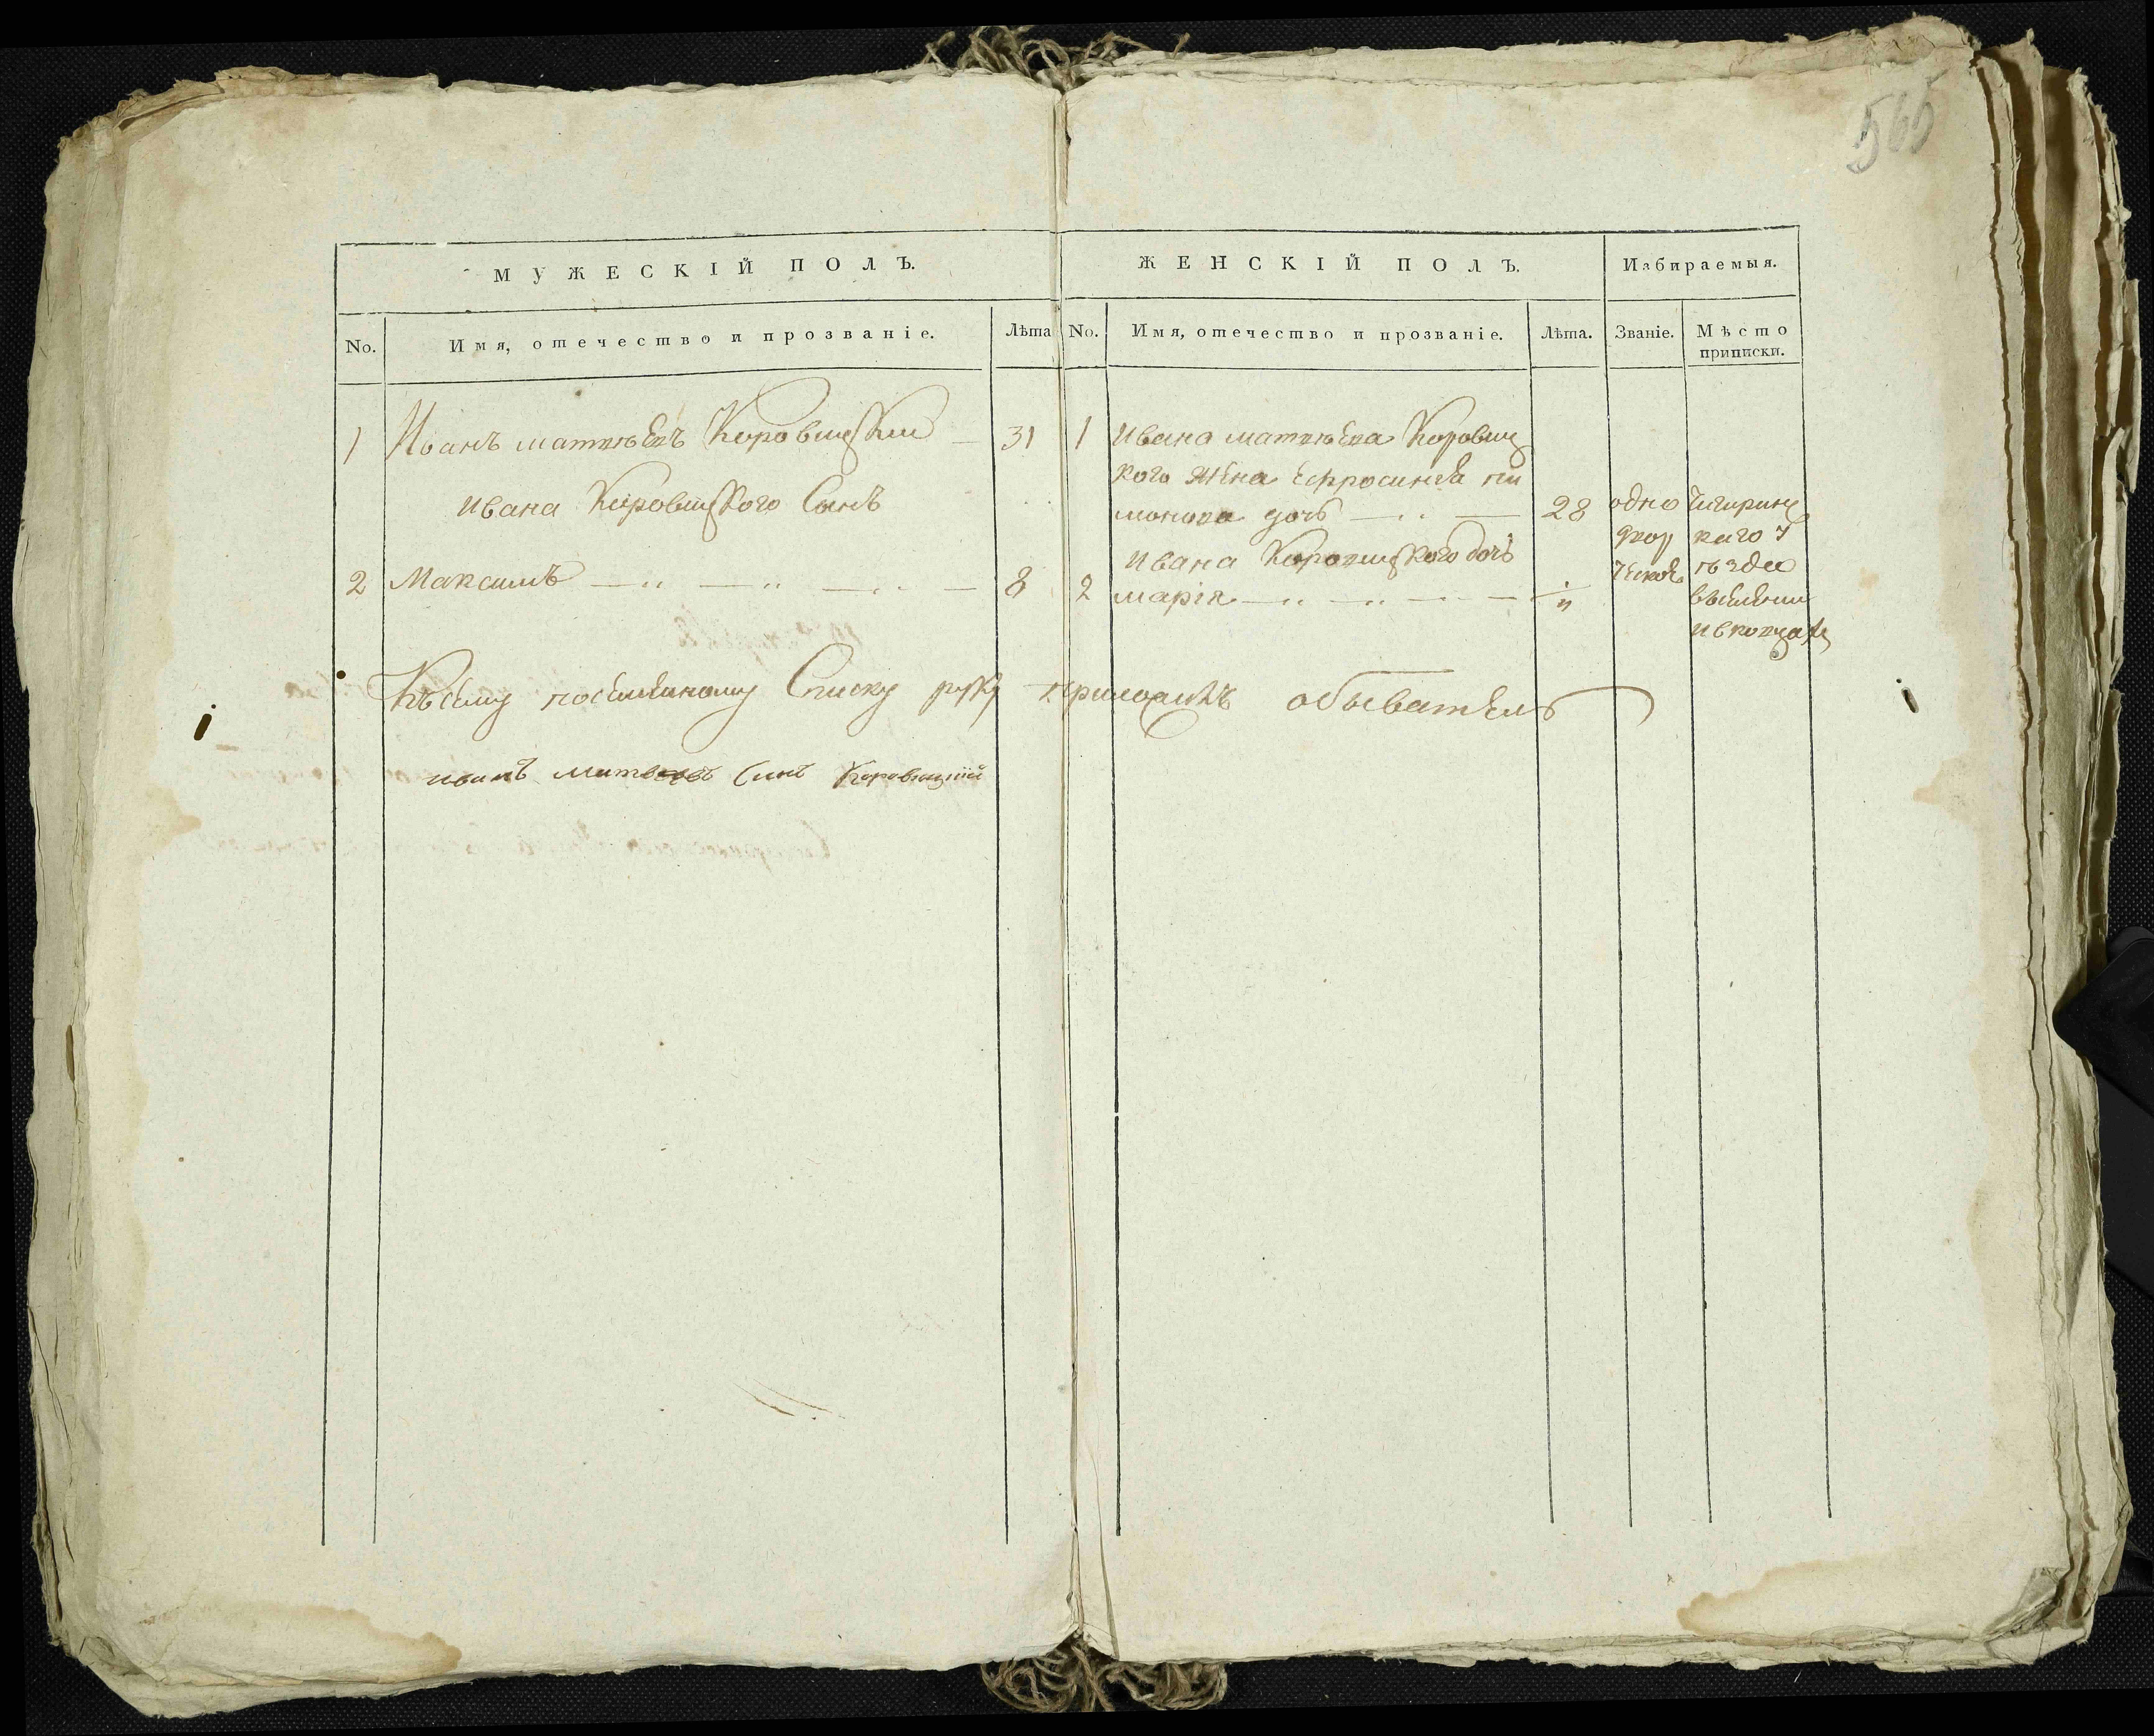 565
МУЖЕСКІЙ ПОЛЪ.
No.
Имя, отечество и прозваніе.
Лѣта
1 Иванъ матвѣевъ Коровицкий — 31
Ивана Коровицкого Сынъ
2 Максимъ — „ — „ — „ — 8
Къ сему посемейному Списку руку приложилъ обыватель
иванъ матвѣевъ Синъ Коровицкий
ЖЕНСКІЙ ПОЛЪ.
No.
Имя, отечество и прозваніе.
Лѣта.
1 Ивана матвѣева Коровиц
кого жена Ефросиния пи
монова дочь — „ — 28
Ивана Коровицкого дочь
2 марія — „ — „ — „ —
Избираемыя.
Званіе.
одно
двор
ческое
Мѣсто
приписки.
Чигиринс
каго у
ѣзда
въселении